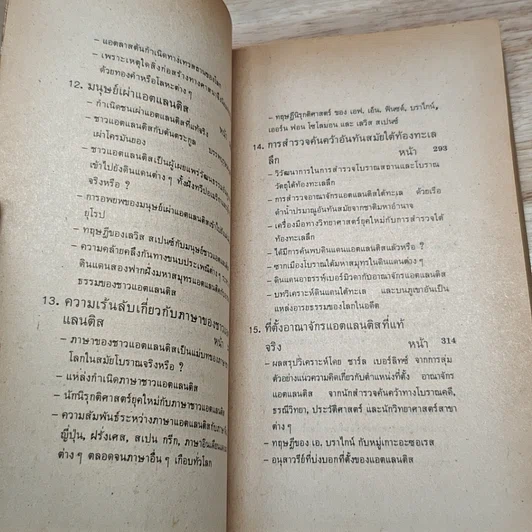 – แอตลาสต้นกำเนิดทางเทวตำนานของ
– เพราะเหตุใดสิ่งก่อสร้างทางศาสนาจึง
ด้วยทองคำหรือโลหะต่าง ๆ
12. มนุษย์เผ่าแอตแลนติส หน้า
– กำเนิดชนเผ่าแอตแลนติสที่แท้จริง
– ชาวแอตแลนติสกับต้นตระกูล
เผ่าโครมันยอง
– ชาวแอตแลนติสเป็นผู้เผยแพร่วัฒนธรรม
เข้าไปยังดินแดนต่าง ๆ ทั้งฝั่งทวีป
จริงหรือ ?
– การอพยพของมนุษย์เผ่าแอตแลนติสเข้าไป
ยุโรป
– ทฤษฎีของเลวิส สเปนซ์กับมนุษย์ชาวแอตแลนติส
– ความคล้ายคลึงกันทางขนบประเพณีต่าง ๆ
ดินแดนสองฟากฝั่งมหาสมุทรแอตแลนติค
ธรรมของชาวแอตแลนติส
13. ความเร้นลับเกี่ยวกับภาษาของชาวแอต
แลนติส หน้า
– ภาษาของชาวแอตแลนติสเป็นแม่บทของภาษา
โลกในสมัยโบราณจริงหรือ ?
– แหล่งกำเนิดภาษาชาวแอตแลนติส
– นักนิรุกติศาสตร์ยุคใหม่กับภาษาชาวแอตแลนติส
– ความสัมพันธ์ระหว่างภาษาแอตแลนติสกับภาษา
ญี่ปุ่น, ฝรั่งเศส, สเปน กรีก, ภาษาอินเดียนแดง
ต่าง ๆ ตลอดจนภาษาอื่น ๆ เกือบทั่วโลก
– ทฤษฎีนิรุกติศาสตร์ ของ เอฟ. เอ็น. ฟินซด์, บราไกน์,
เออร์น ฟอน โซโลมอน และ เลวิส สเปนซ์
14. การสำรวจค้นคว้าอันทันสมัยใต้ท้องทะเล
ลึก หน้า 293
– วิวัฒนาการในการสำรวจโบราณสถานและโบราณ
วัตถุใต้ท้องทะเลลึก
– การสำรวจอาณาจักรแอตแลนติสใต้ทะเล ด้วยเรือ
ดำน้ำปรมาณูอันทันสมัยจากชาติมหาอำนาจ
– เครื่องมือทางวิทยาศาสตร์ยุคใหม่กับการสำรวจใต้
ท้องทะเลลึก
– ได้มีการค้นพบดินแดนแอตแลนติสแล้วหรือ ?
– ซากเมืองโบราณใต้มหาสมุทรในดินแดนต่าง ๆ
– ดินแดนอาถรรพ์เบอร์มิวดากับอาณาจักรแอตแลนติส
– บทวิเคราะห์ดินแดนใต้ทะเล และบนภูเขาอันเป็น
แหล่งอารยธรรมของโลกในอดีต
15. ที่ตั้งอาณาจักรแอตแลนติสที่แท้
จริง หน้า 314
– ผลสรุปวิเคราะห์โดย ชาร์ล เบอร์ลิทซ์ จากการสุ่ม
ตัวอย่างแนวความคิดเกี่ยวกับตำแหน่งที่ตั้ง อาณาจักร
แอตแลนติส จากนักสำรวจค้นคว้าทางโบราณคดี,
ธรณีวิทยา, ประวัติศาสตร์ และนักวิทยาศาสตร์สาขา
ต่าง ๆ
– ทฤษฎีของ เอ. บราไกน์ กับหมู่เกาะอะซอเรส
– อนุสาวรีย์ที่บ่งบอกที่ตั้งของแอตแลนติส